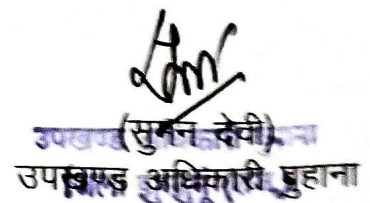 (सुमन देवी)
उपखण्ड अधिकारी बुहाना